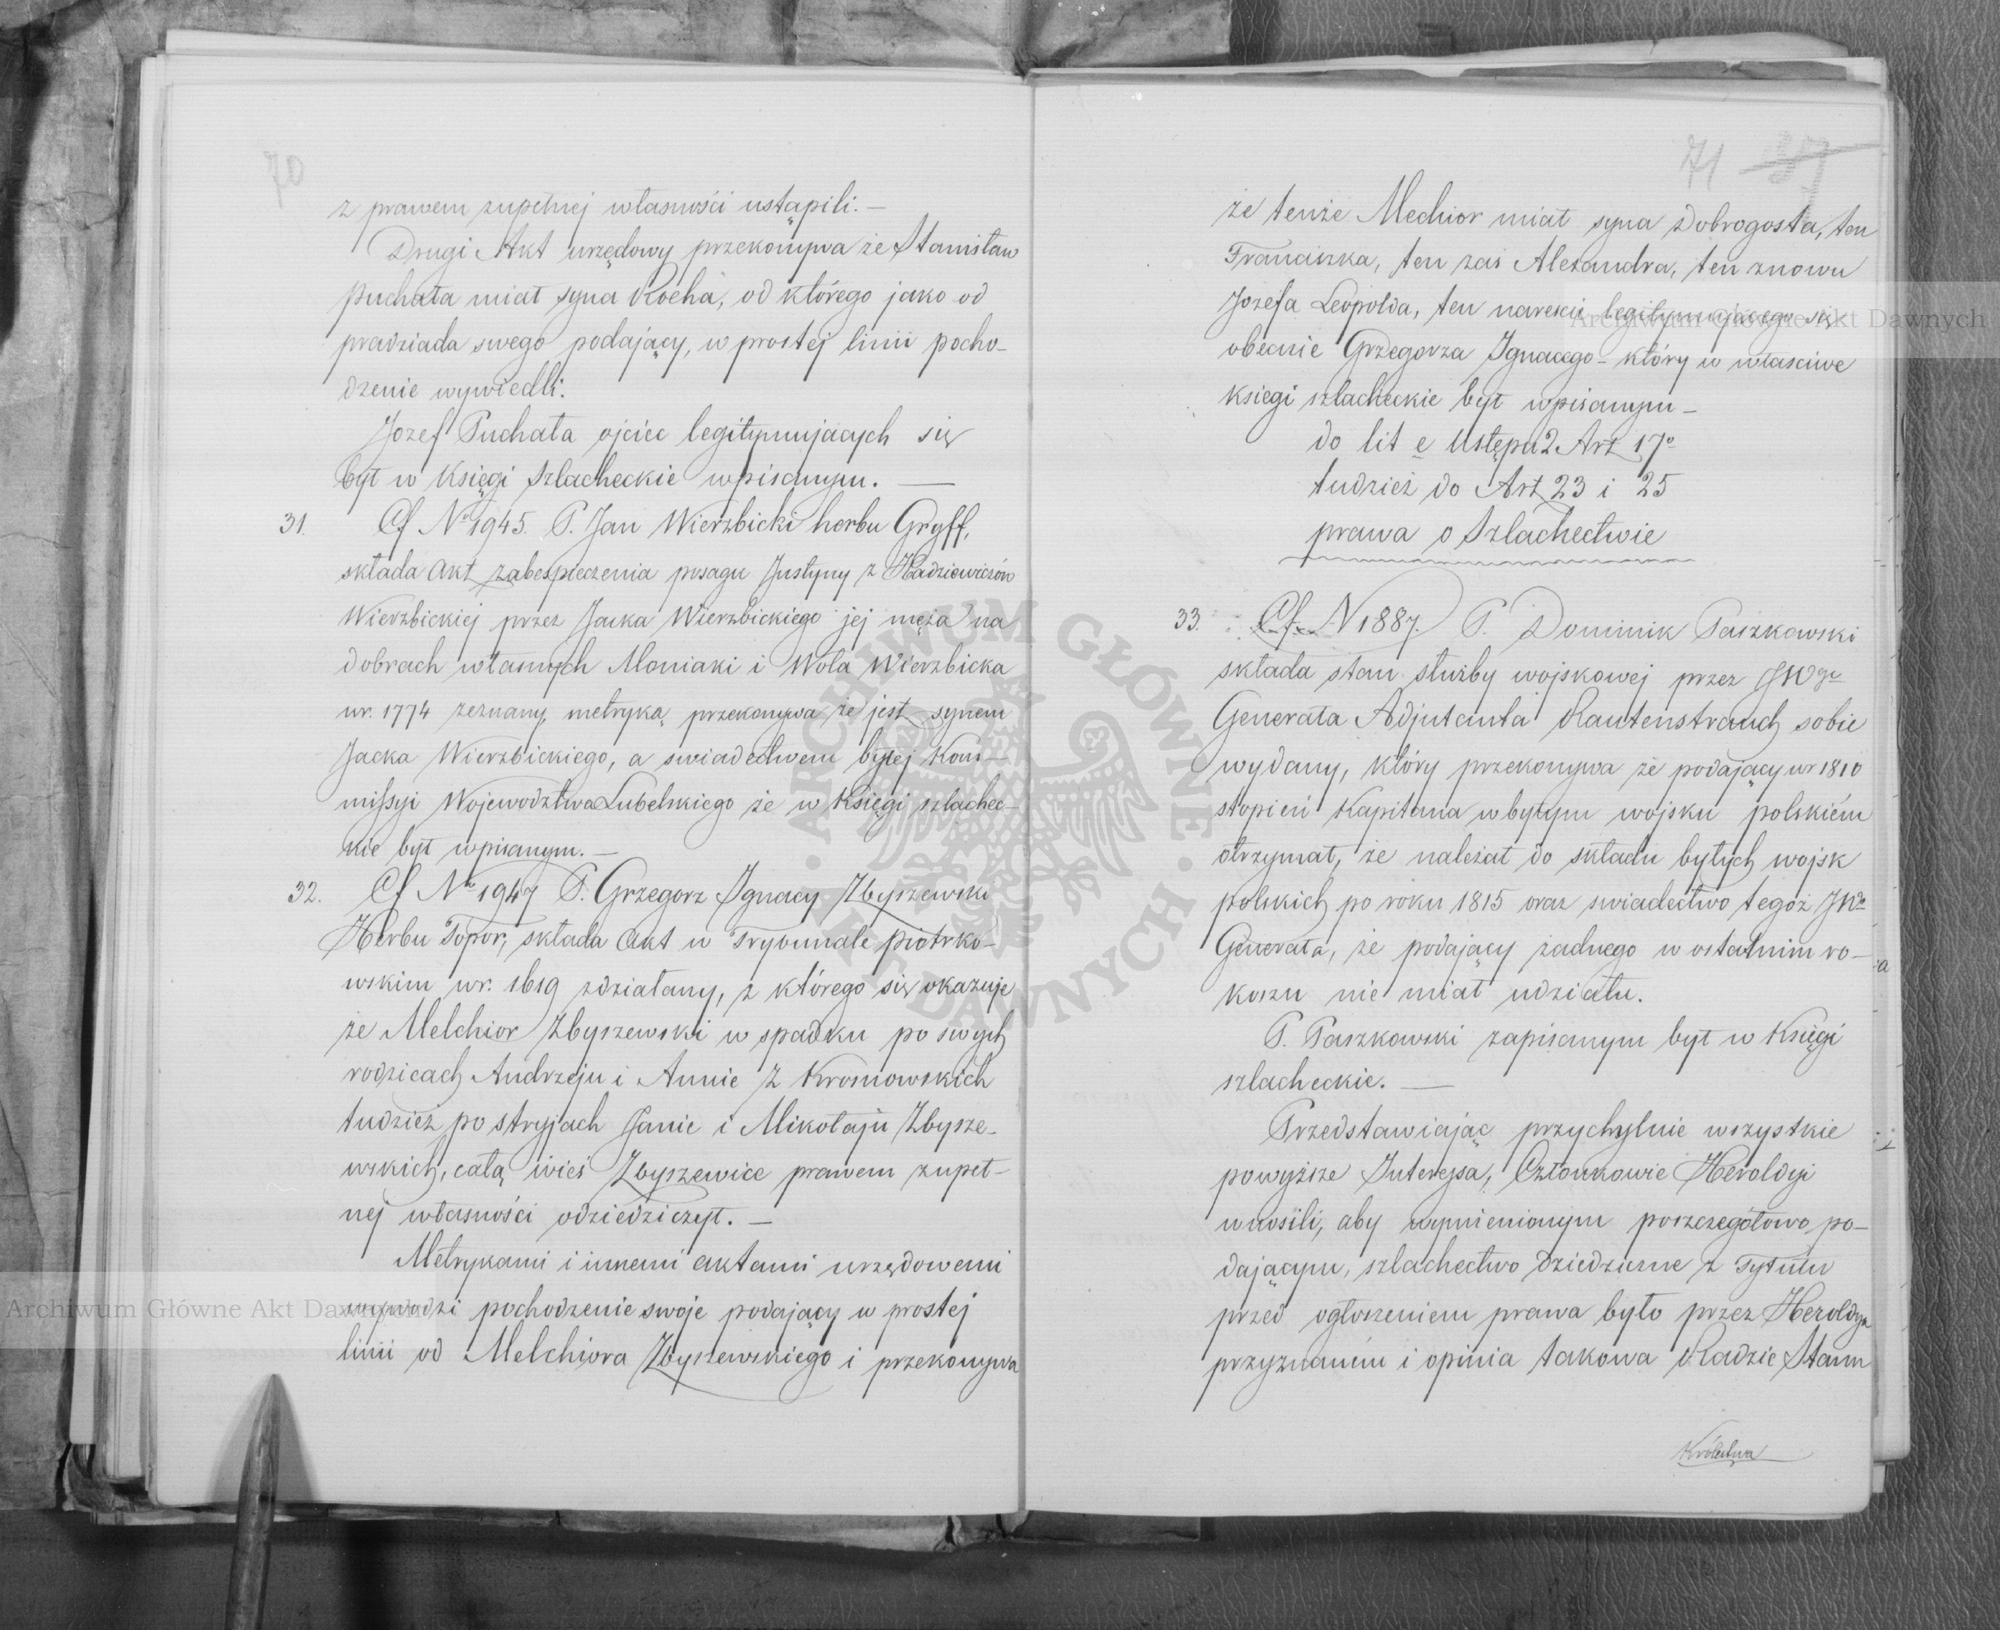 70
z prawem zupełnej własności ustąpili. —
Drugi Akt urzędowy przekonywa że Stanisław
Puchała miał syna Rocha, od którego jako od
pradziada swego podający, w prostej linii pocho-
dzenie wywiedli.
Jozef Puchała ojciec legitymujacych się
był w Księgi Szlacheckie wpisanym. —
31. Cf No 1945. P. Jan Wierzbicki herbu Gryff,
składa Akt zabespieczenia posagu Justyny z Hadziewiczów
Wierzbickiej przez Jacka Wierzbickiego jej męża na
dobrach własnych Moniaki i Wola Wierzbicka
w r. 1774 zeznany, metryką przekonywa że jest synem
Jacka Wierzbickiego, a swiadectwem byłej Kom-
missyi Województwa Lubelskiego że w Księgi szlachec-
kie był wpisanym. —
32. Cf No 1947 P. Grzegorz Ignacy Zbyszewski
Herbu Topor, składa Akt w Trybunale Piotrko-
wskim w r. 1619 zdziałany, z którego się okazuje
że Melchior Zbyszewski w spadku po swych
rodzicach Andrzeju i Annie z Krosnowskich
tudzież po stryjach Janie i Mikołaju Zbysze-
wskich, całą wieś Zbyszewice prawem zupeł-
nej własności odziedziczył. —
Metrykami i innemi aktami urzędowemi
wywodzi pochodzenie swoje podający w prostej
linii od Melchiora Zbyszewskiego i przekonywa
71 37
że tenże Mechior miał syna Dobrogosta, ten
Franciszka, ten zaś Alexandra, ten znowu
Jozefa Leopolda, ten nareście legitymującego się
obecnie Grzegorza Ignacego - który w właściwe
księgi szlacheckie był wpisanym —
do lit e Ustępu 2 Art 17o
tudzież do Art 23 i 25
prawa o Szlachectwie
33. Cf. N 1887. P. Dominik Paszkowski
składa stan służby wojskowej przez JWgo
Generała Adjutanta Rautenstrauch sobie
wydany, który przekonywa że podający w r 1810
stopień Kapitana w byłym wojsku polskiém
otrzymał, że należał do składu byłych wojsk
polskich po roku 1815 oraz swiadectwo tegoż JWo
Generała, że podający żadnego w ostatnim ro-
koszu nie miał udziału.
P. Paszkowski zapisanym był w Księgi
szlacheckie. —
Przedstawiając przychylnie wszystkie
powyższe Interessa, Członkowie Heroldyi
wnosili, aby wymienionym poszczegółowo po-
dającym, szlachectwo dziedziczne z Tytułu
przed ogłoszeniem prawa było przez Heroldyą
przyznaném i opinia takowa Radzie Stanu
Królestwa
Archiwum Główne Akt Dawnych
Archiwum Główne Akt Dawnych
ARCHIWUM GŁÓWNE AKT DAWNYCH